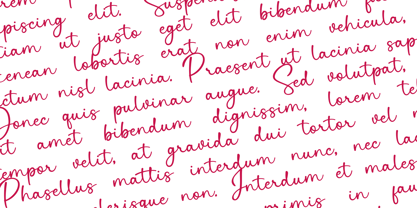 elit. Suspen
piscing
justo eget elit bibendum
ut
lobortis erat non enim vehicula,
nisl lacinia. Praesent ut lacinia
quis pulvinar augue. Sed volutpat,
amet bibendum dignissim, lorem
velit, at gravida dui tortor vel
Phasellus mattis interdum nunc, nec
non. Interdum et males
primis in fauc